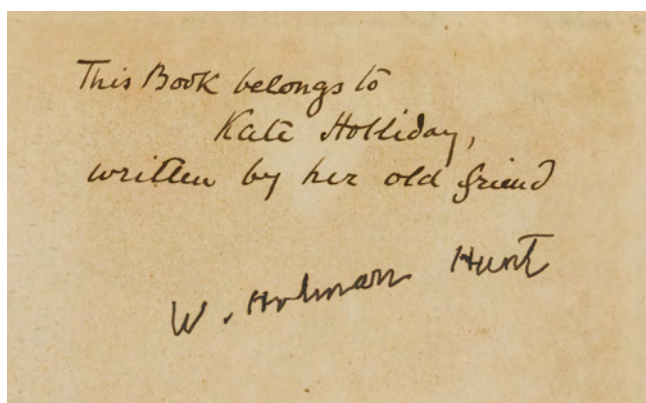 This Book belongs to
Kate Holliday,
written by her old friend
W. Holman Hunt